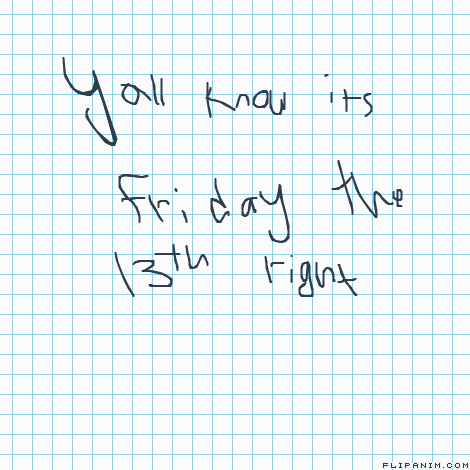 yall know its
friday the
13th right
FLIPANIM.COM